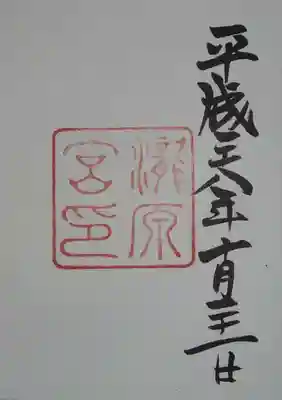 平成二十八年十月三十一日
瀧原
宮印